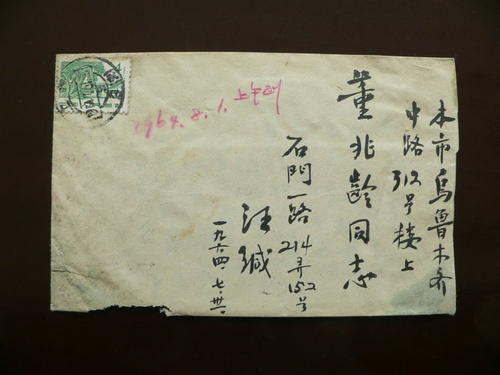 本市乌鲁木齐
中路312号楼上
董兆龄同志
石门一路
214弄152号
汪缄
一九六四.七.卅一
1964.8.1.上午到